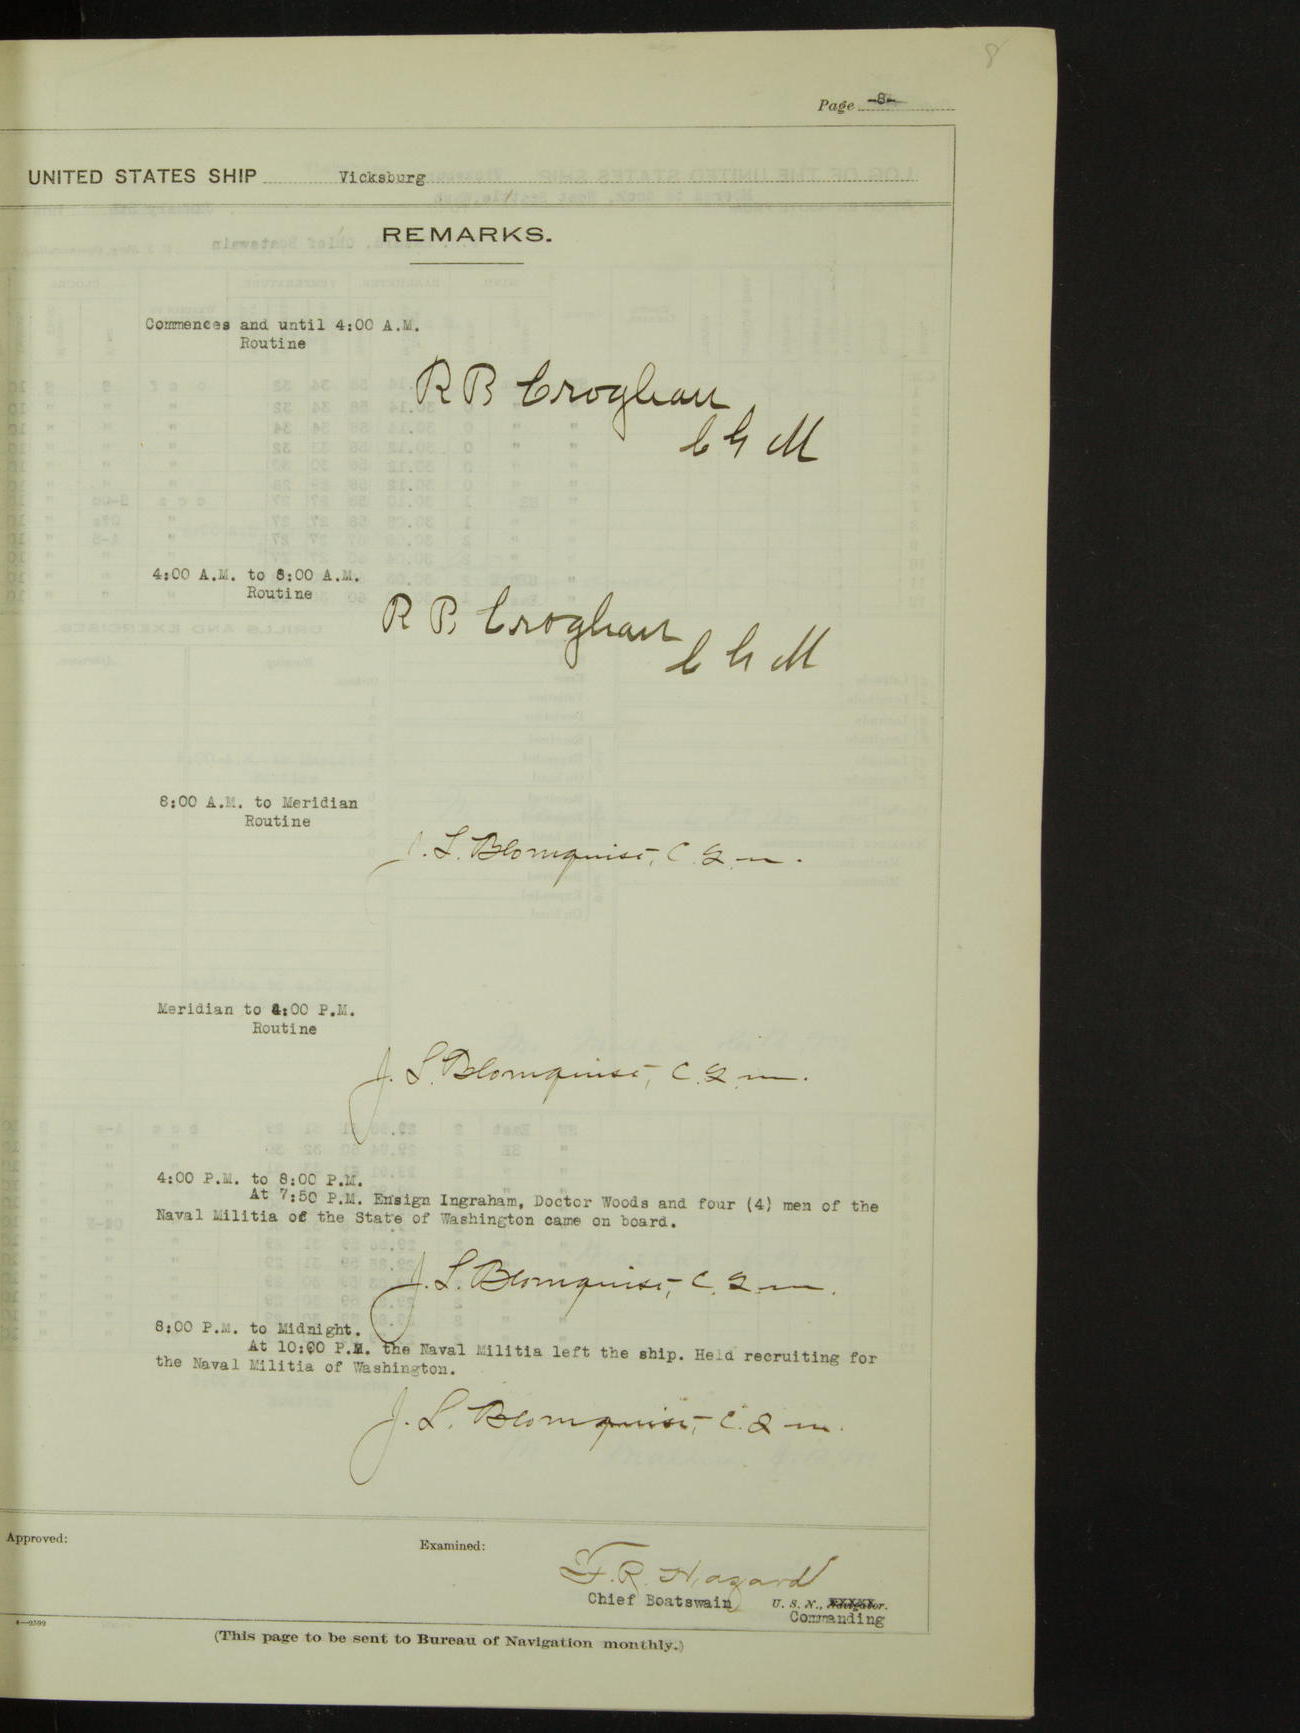 8
Page -8-
UNITED STATES SHIP Vicksburg
REMARKS.
Commences and until 4:00 A.M.
Routine
R B Croghan
C G M
4:00 A.M. to 8:00 A.M.
Routine
R B Croghan
C G M
8:00 A.M. to Meridian
Routine
J. L. Blomquist, C. G. M.
Meridian to 4:00 P.M.
Routine
J. L. Blomquist, C. G. M.
4:00 P.M. to 8:00 P.M.
At 7:50 P.M. Ensign Ingraham, Doctor Woods and four (4) men of the
Naval Militia of the State of Washington came on board.
J. L. Blomquist, C. G. M.
8:00 P.M. to Midnight.
At 10:00 P.M. the Naval Militia left the ship. Held recruiting for
the Naval Militia of Washington.
J. L. Blomquist, C. G. M.
Approved:
Examined:
F. R. Hazard
Chief Boatswain U. S. N., Navigator.
Commanding
(This page to be sent to Bureau of Navigation monthly.)